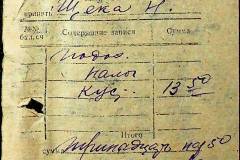 принять Щека Н.
№№ бил. сч Содержание записи Сумма
Подос.
налы
кус. 13 50
Итого
сумма Тринадцать руб 50